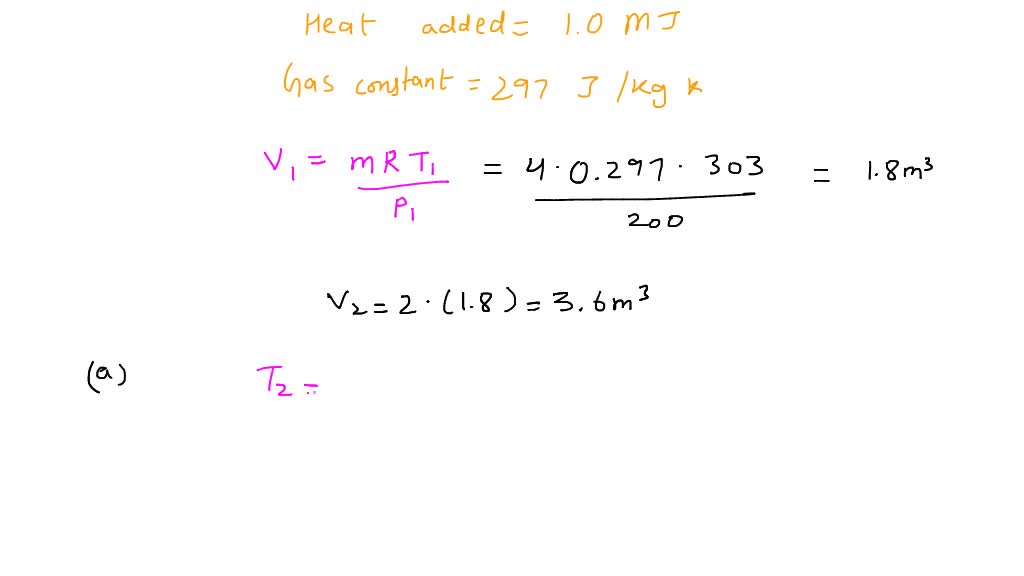 Heat added = 1.0 MJ
Gas constant = 297 J/kg K
V₁ = mRT₁/P₁ = 4 · 0.297 · 303/200 = 1.8m³
V₂ = 2 · (1.8) = 3.6m³
(a) T₂ =